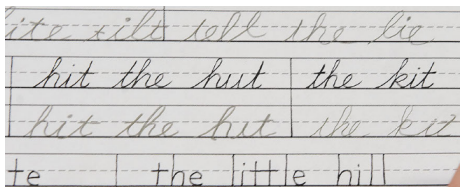 ite tilt tell the lie
hit the hut the kit
hit the hut the kit
te the little hill